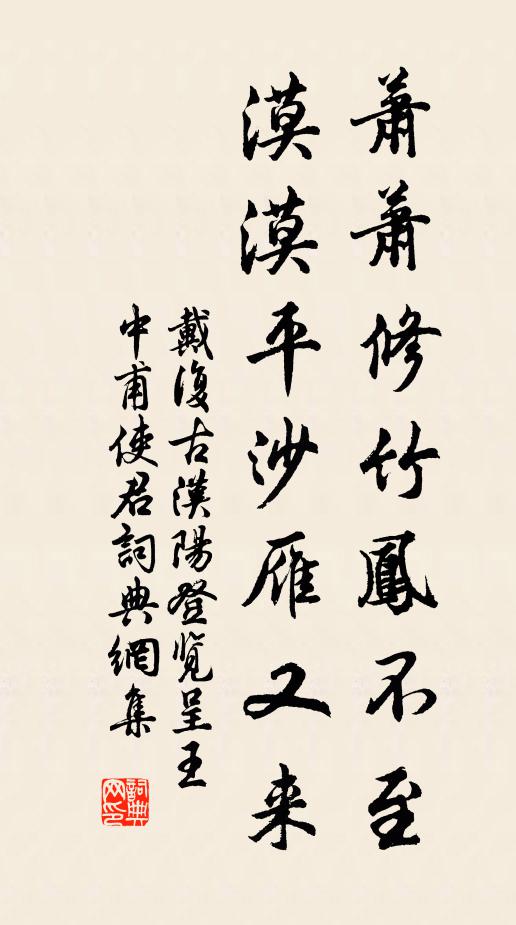 蕭蕭修竹鳳不至
漠漠平沙雁又来
戴復古漢陽登览呈王
中甫使君詞典網集
詞典网印